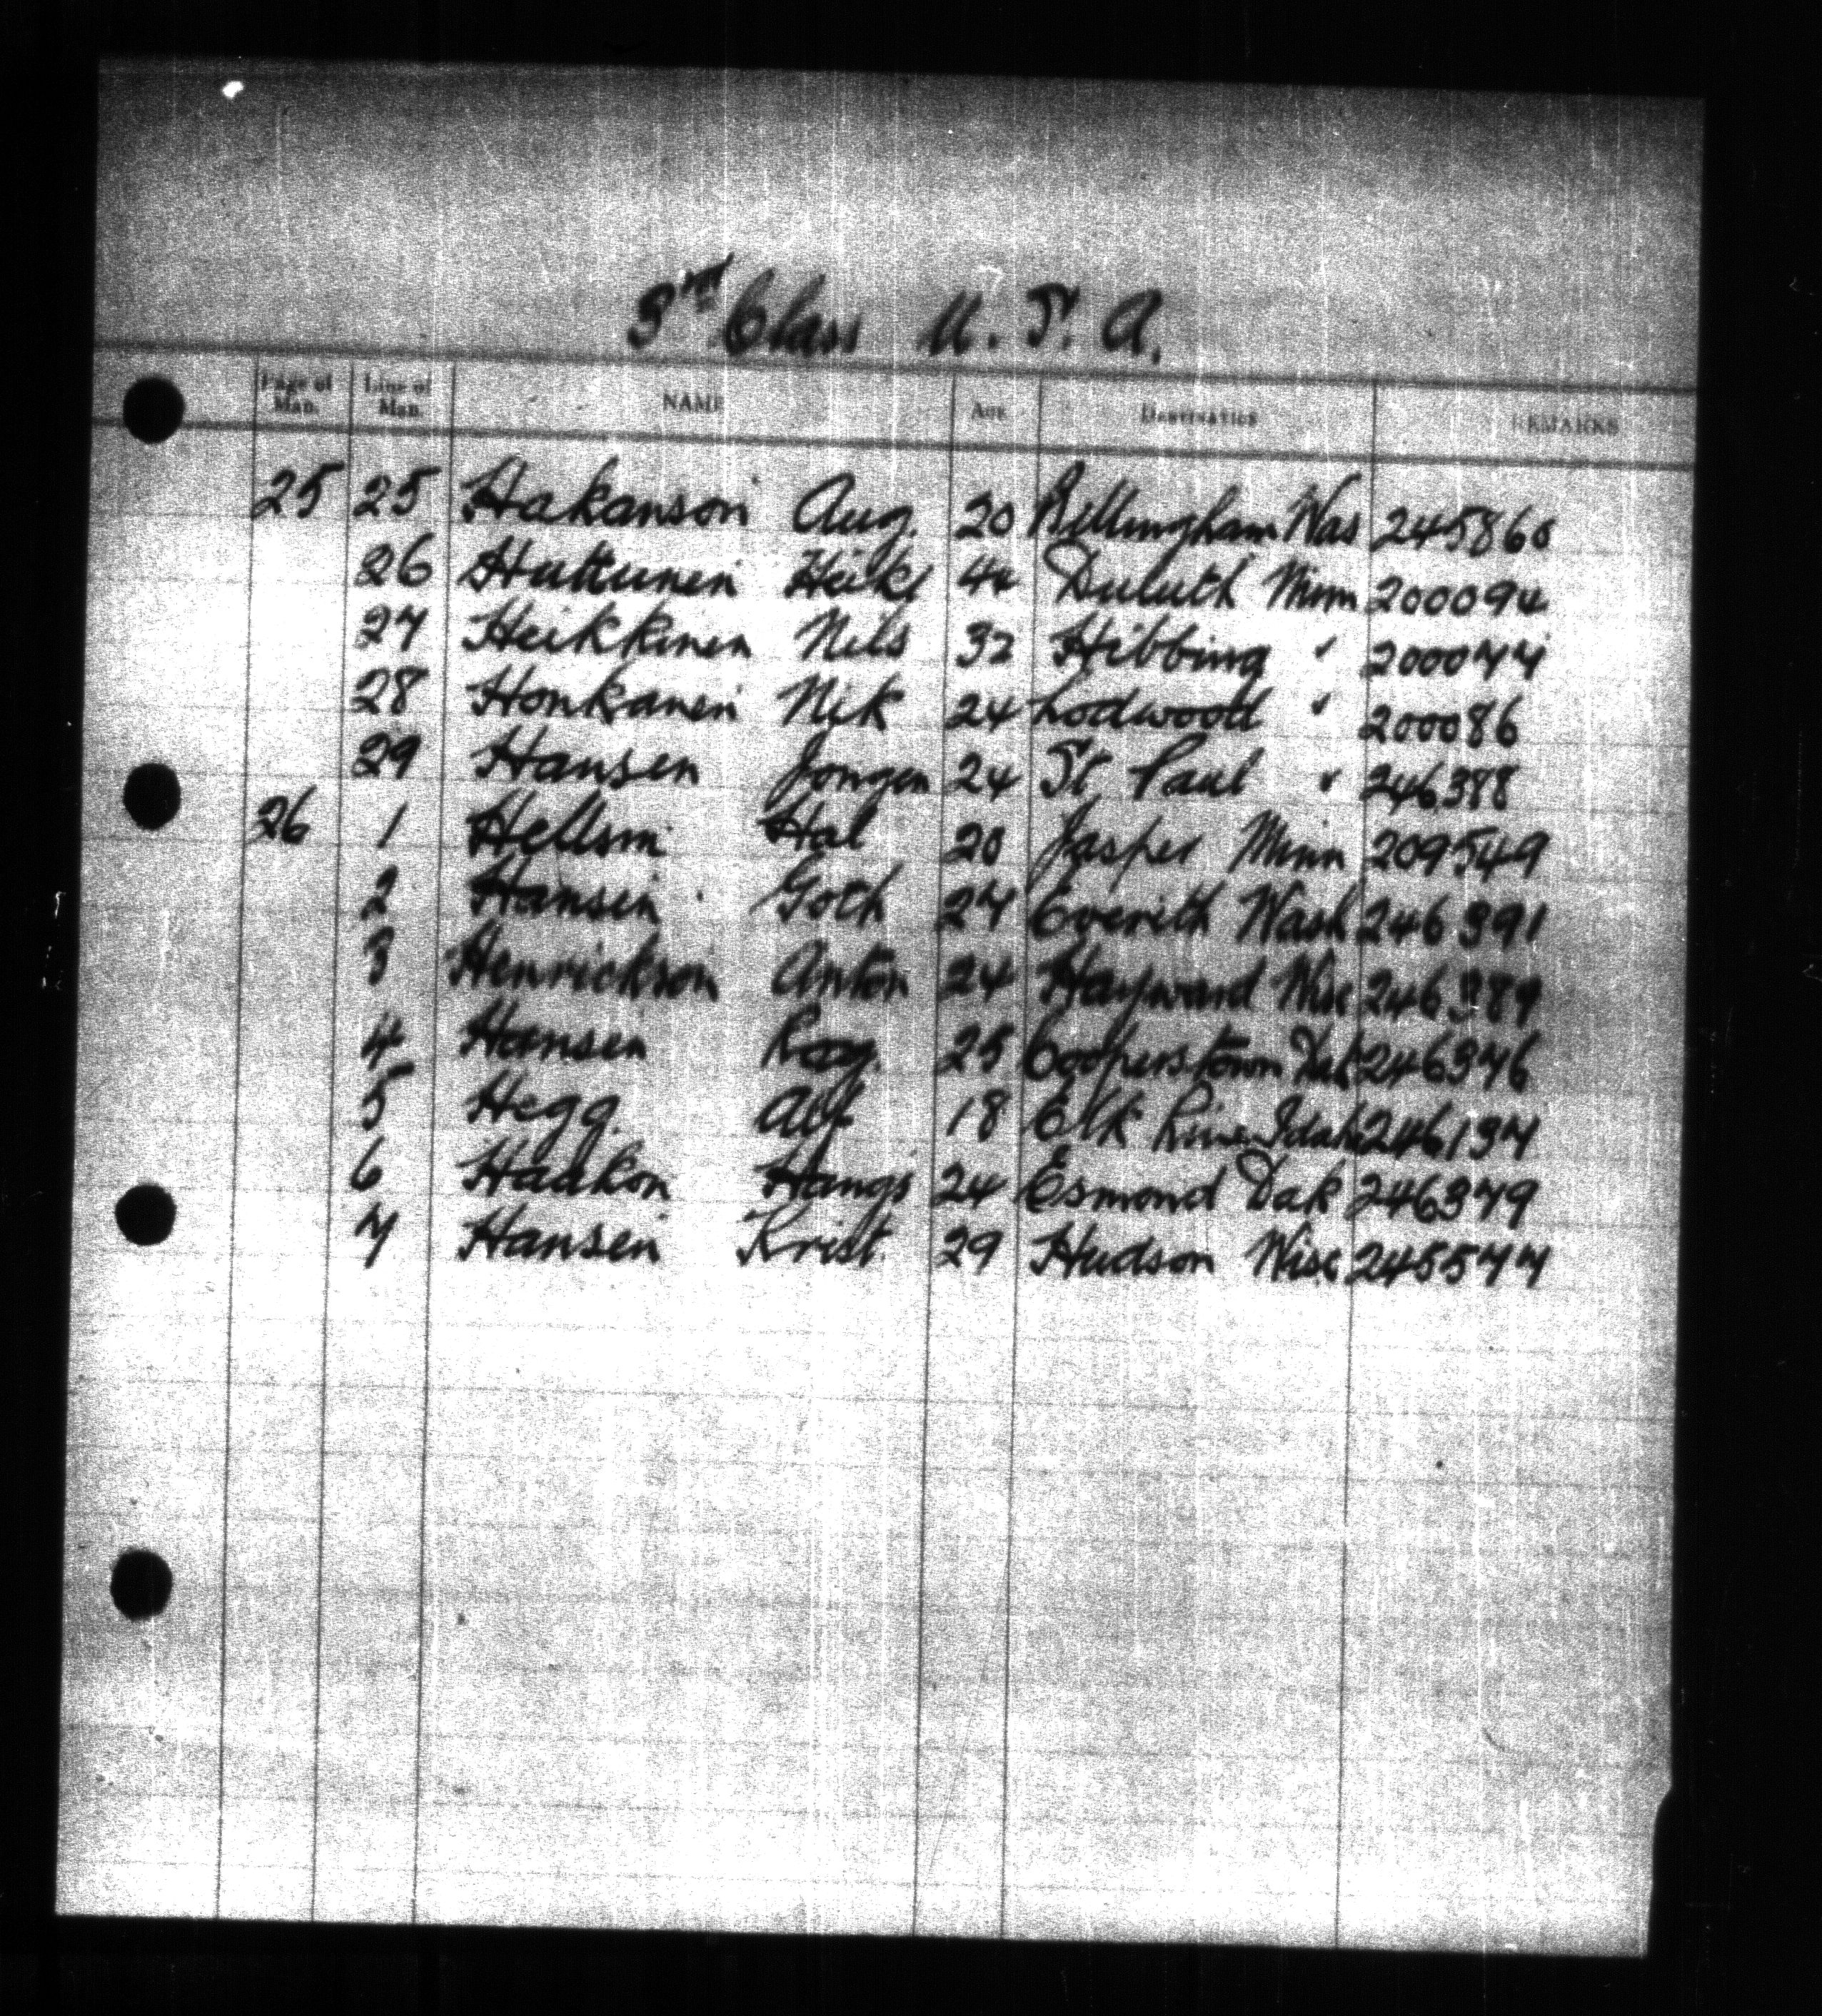 3rd Class U. S. A.
Page of Man. Line of Man. NAME AGE DESTINATION REMARKS
25 25 Hakanson Aug. 20 Bellingham Was 245860
26 Huttunen Heiki 44 Duluth Minn 200094
27 Heikkinen Nils 32 Hibbing " 200077
28 Honkanen Nik 24 Lodwood " 200086
29 Hansen Jorgen 24 St. Paul " 246388
26 1 Hellsm Hal 20 Jasper Minn 209549
2 Hansen Goth 27 Everith Wash 246391
3 Henrickson Anton 24 Hayward Wisc 246389
4 Hansen Rag. 25 Cooperstown Dak 246376
5 Hegg. Alf 18 Elk Idah 246137
6 Haakon Haugs 24 Esmond Dak 246379
7 Hansen Krist. 29 Hudson Wisc 245577